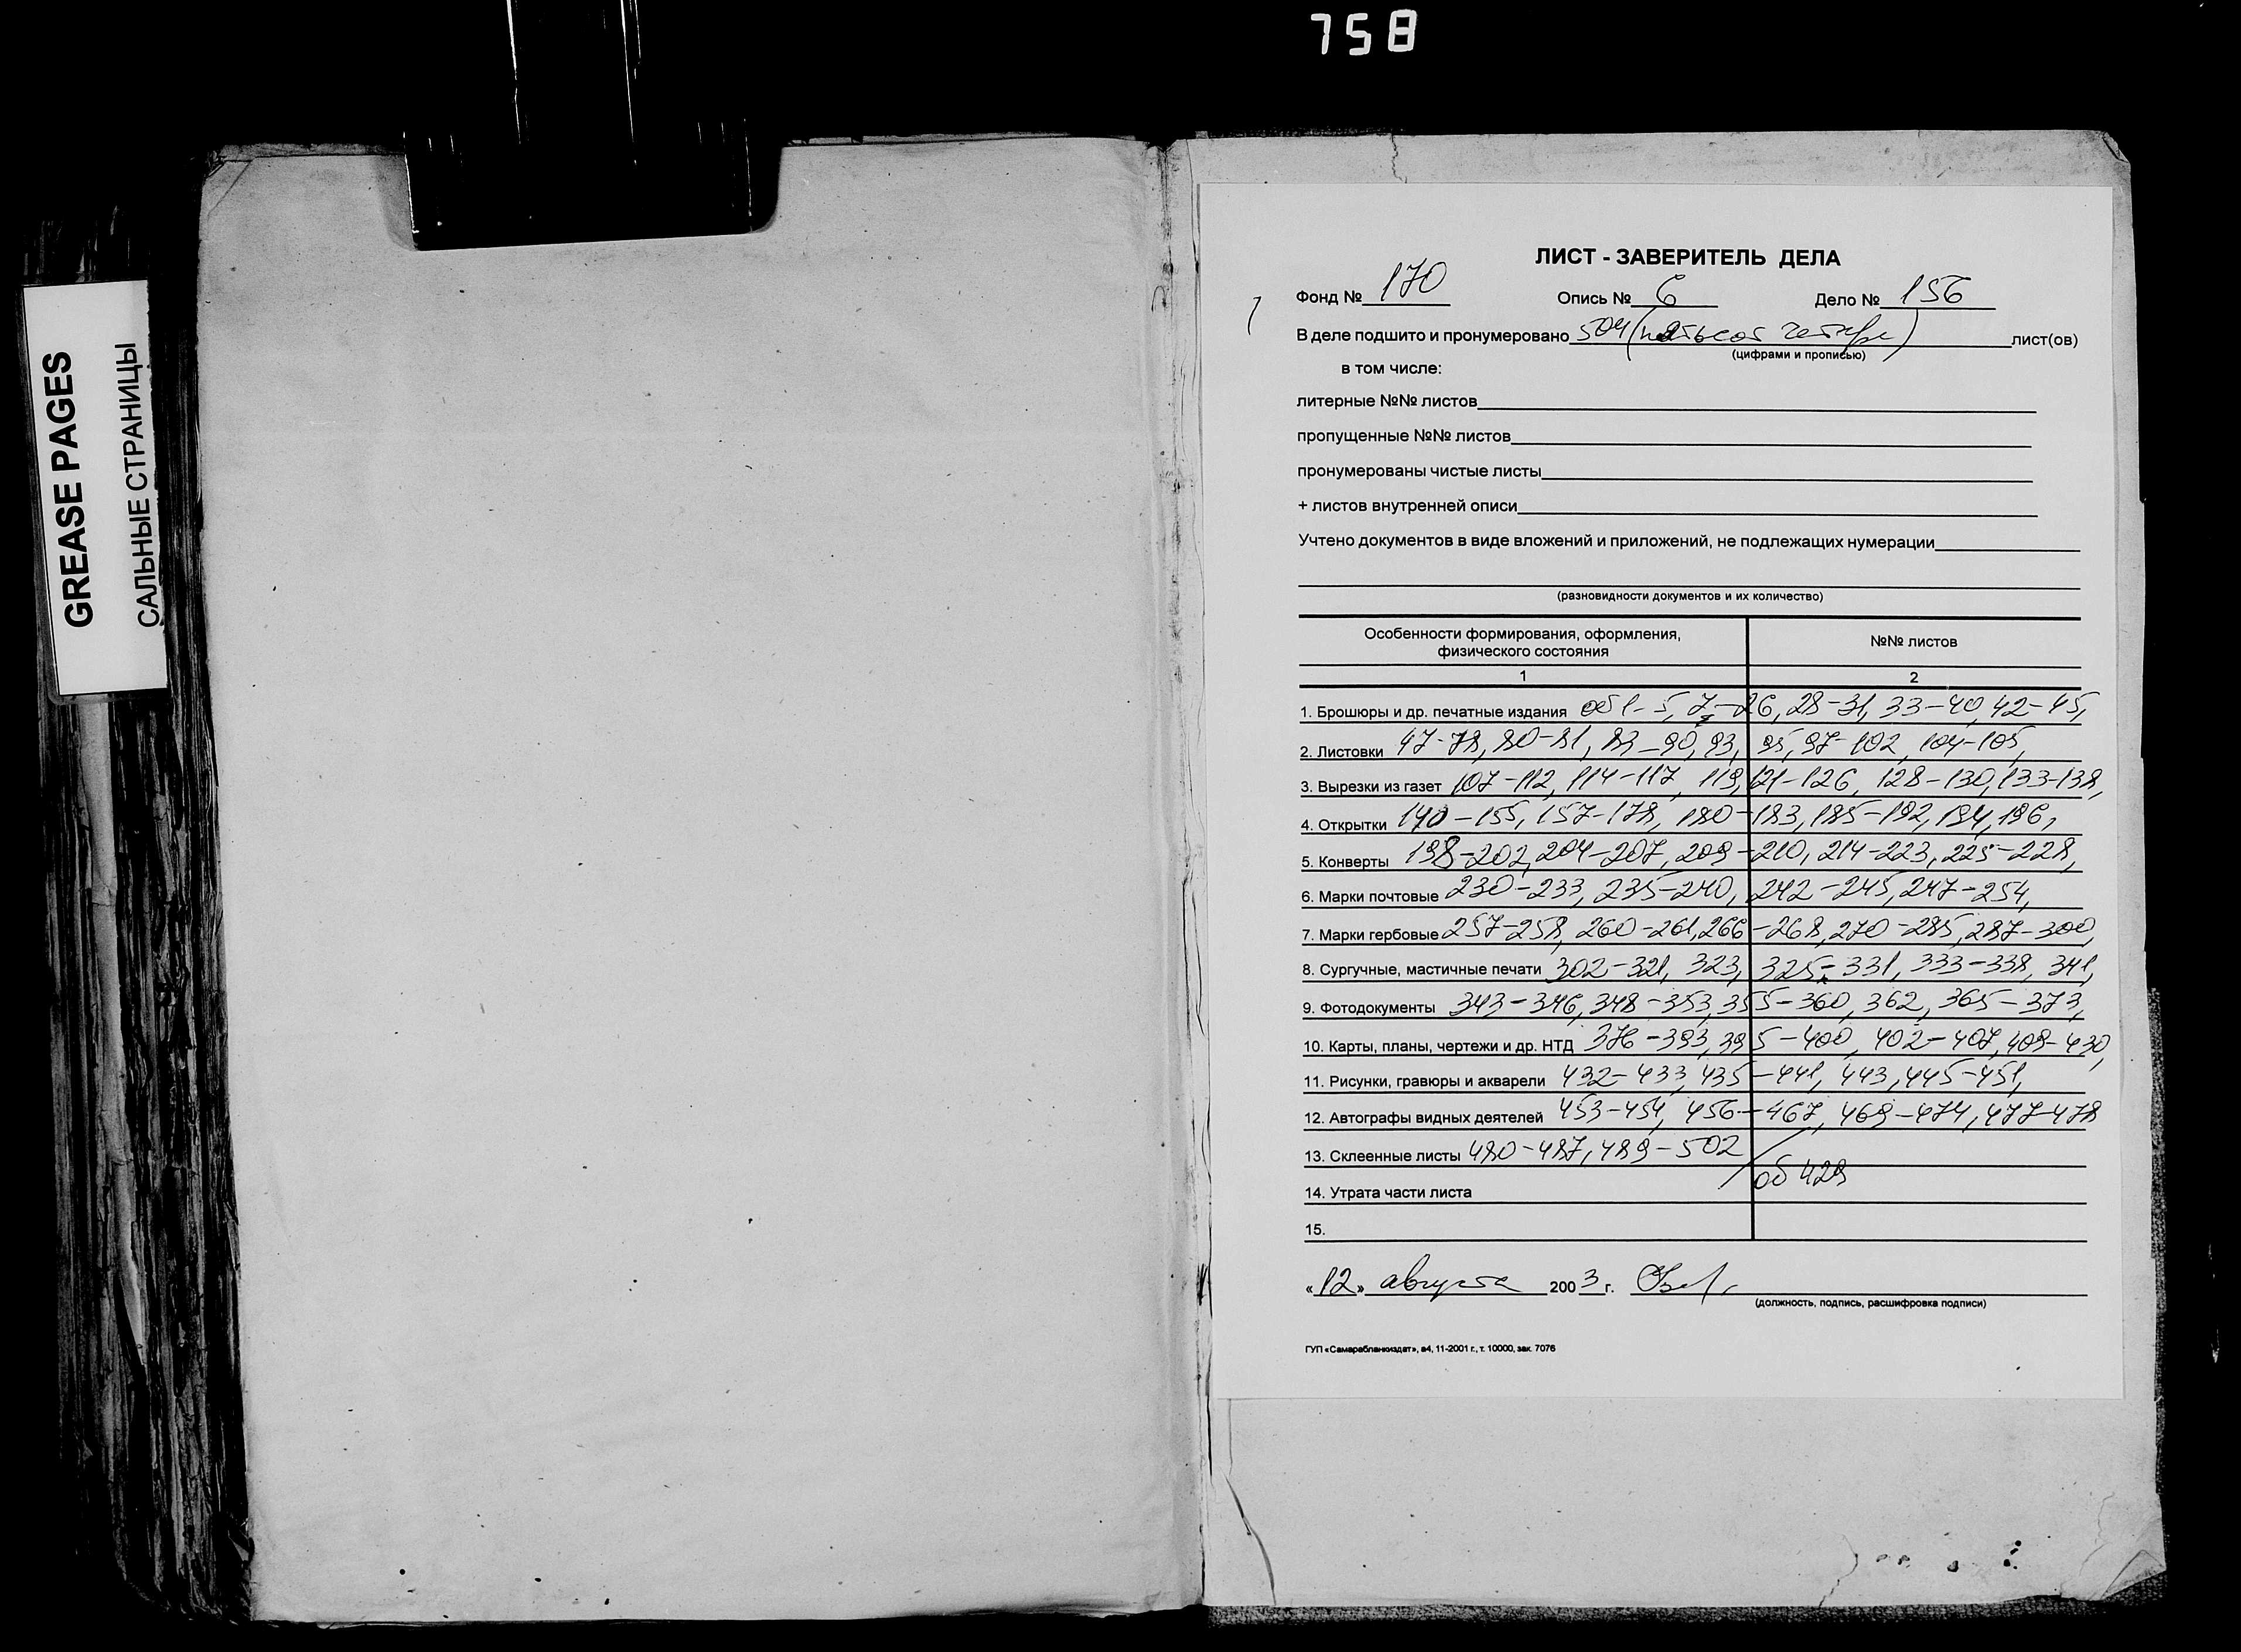 758
GREASE PAGES
САЛЬНЫЕ СТРАНИЦЫ
ЛИСТ - ЗАВЕРИТЕЛЬ ДЕЛА
Фонд № 170 Опись № 6 Дело № 156
В деле подшито и пронумеровано 504 (пятьсот четыре) лист(ов)
(цифрами и прописью)
в том числе:
литерные №№ листов
пропущенные №№ листов
пронумерованы чистые листы
+ листов внутренней описи
Учтено документов в виде вложений и приложений, не подлежащих нумерации
(разновидности документов и их количество)
Особенности формирования, оформления, физического состояния №№ листов
1 2
1. Брошюры и др. печатные издания об 1-5, 7-26, 28-31, 33-40, 42-45,
2. Листовки 47-78, 80-81, 83-90, 93, 95, 97-102, 104-105,
3. Вырезки из газет 107-112, 114-117, 119, 121-126, 128-130, 133-138,
4. Открытки 140-155, 157-178, 180-183, 185-192, 194, 196,
5. Конверты 198-202, 204-207, 209-210, 214-223, 225-228,
6. Марки почтовые 230-233, 235-240, 242-245, 247-254,
7. Марки гербовые 257-258, 260-261, 266-268, 270-285, 287-300,
8. Сургучные, мастичные печати 302-321, 323, 325-331, 333-338, 341,
9. Фотодокументы 343-346, 348-353, 355-360, 362, 365-373,
10. Карты, планы, чертежи и др. НТД 376-393, 395-400, 402-407, 409-430,
11. Рисунки, гравюры и акварели 432-433, 435-441, 443, 445-451,
12. Автографы видных деятелей 453-454, 456-467, 469-474, 477-478
13. Склеенные листы 480-487, 489-502
14. Утрата части листа об 429
15.
«12» августа 2003 г.
(должность, подпись, расшифровка подписи)
ГУП «Самарабланкиздат», а4, 11-2001 г., т. 10000, зак. 7076